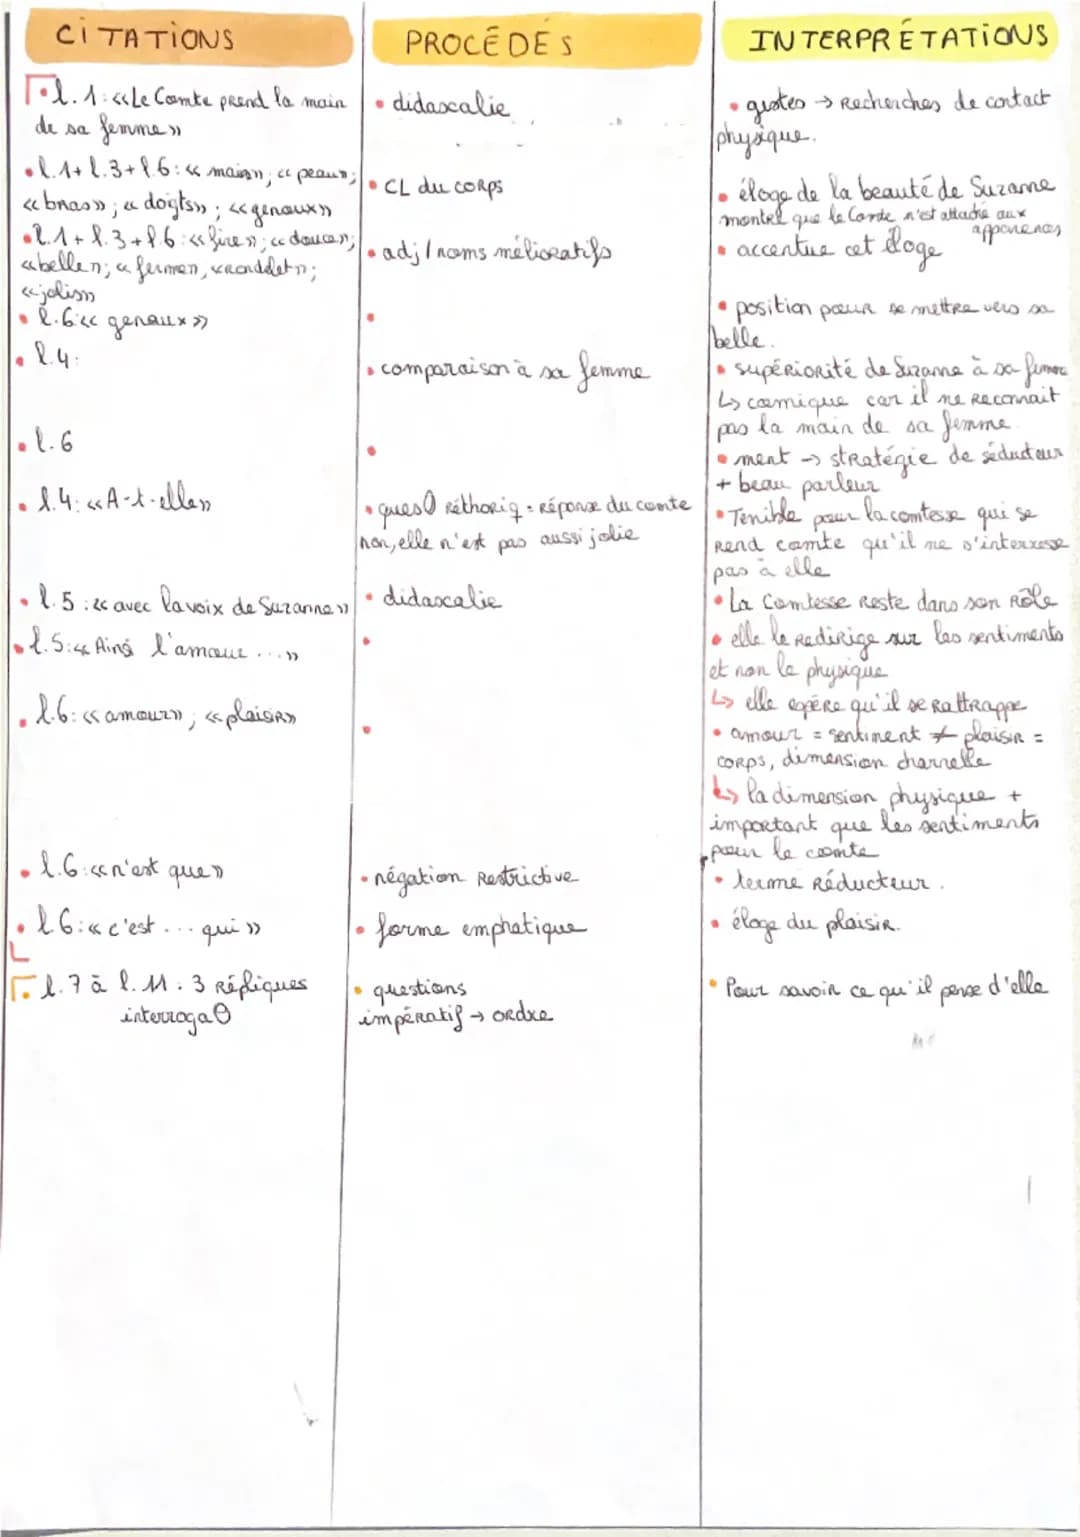 CITATIONS
PROCÉDÉS
INTERPRÉTATIONS
• l. 1: «Le Comte prend la main
de sa femme»
• l. 1 + l. 3 + l. 6: « main»; «peau»;
«bras»; « doigts»; «genoux»
• l. 1 + l. 3 + l. 6: «fine»; «douce»;
«belle»; « ferme», «rondelet»;
«jolis»
• l. 6: « genoux »
• l. 4:
• l. 6
• l. 4: «A-t-elle»
• l. 5 : « avec la voix de Suzanne »
• l. 5: « Ainsi l'amour ... »
• l. 6: «amour»; «plaisir»
• l. 6: «n'est que»
• l. 6: « c'est ... qui »
• l. 7 à l. 11 : 3 Répliques
interroga⊖
• didascalie
• CL du corps
• adj / noms mélioratifs
•
• comparaison à sa femme
•
• quesθ réthoriq = Réponse du comte
non, elle n'est pas aussi jolie
• didascalie
•
•
• négation Restrictive
• forme emphatique
• questions
impératif → ordre
• gestes → Recherches de contact
physique.
• éloge de la beauté de Suzanne
montre que le Comte n'est attaché aux
apparences
• accentue cet éloge
• position pour se mettre vers sa
belle.
• supériorité de Suzanne à sa femme
↳ comique car il ne Reconnait
pas la main de sa femme.
• ment → stratégie de séducteur
+ beau parleur
• Terrible pour la comtesse qui se
Rend comte qu'il ne s'interresse
pas à elle
• La Comtesse Reste dans son Rôle
• elle le Redirige sur les sentiments
et non le physique
↳ elle espère qu'il se Rattrappe
• amour = sentiment ≠ plaisir =
corps, dimension charnelle
↳ la dimension physique +
important que les sentiments
pour le comte
• terme Réducteur.
• éloge du plaisir.
• Pour savoir ce qu'il pense d'elle